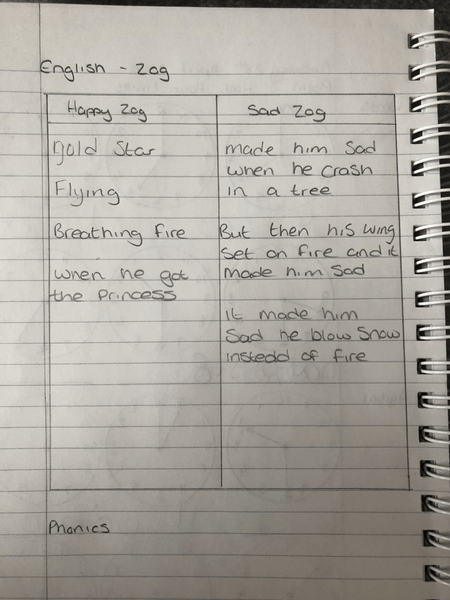 English - Zog
Happy Zog
Sad Zog
Gold Star
Flying
Breathing fire
when he got
the Princess
made him Sad
when he crash
in a tree
But then his wing
set on fire and it
made him sad
it made him
Sad he blow Snow
instedd of fire
Phonics